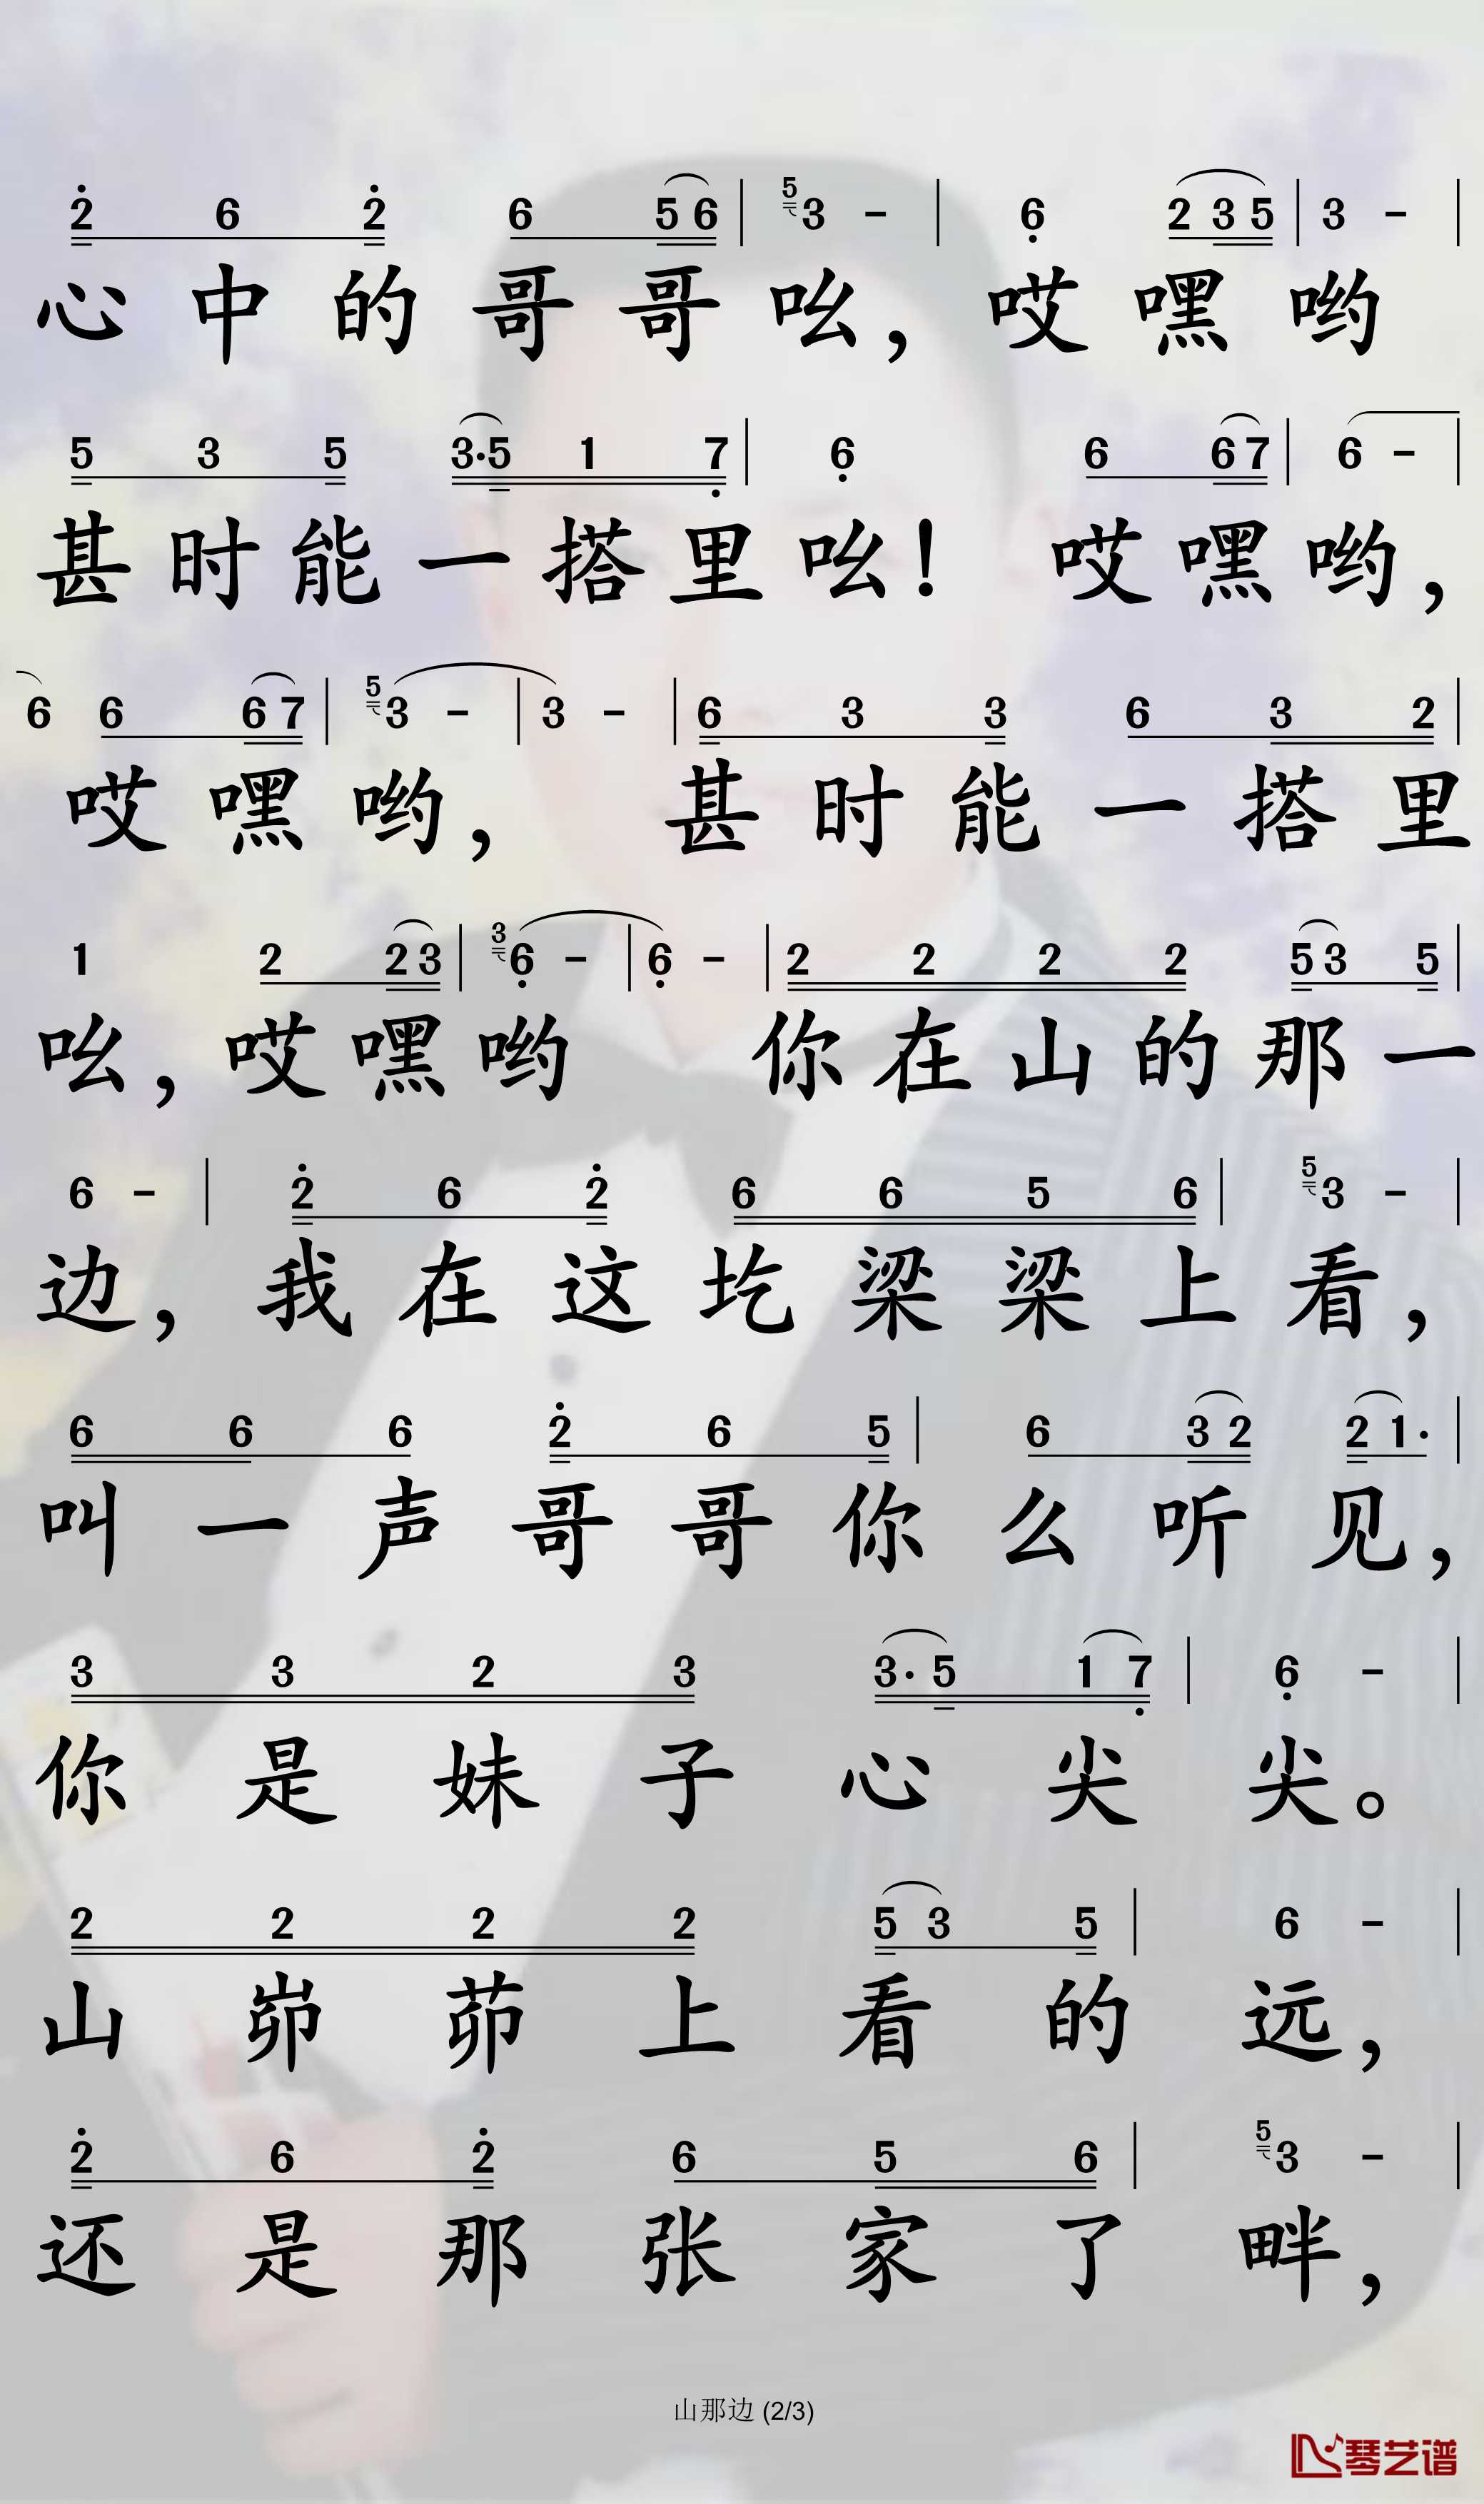 2 6 2 6 5 6 | 5 3 - | 6 2 3 5 | 3 - |
心中的哥哥吆，哎嘿哟
5 3 5 3·5 1 7 | 6 6 6 7 | 6 - |
甚时能一搭里吆！哎嘿哟，
6 6 6 7 | 5 3 - | 3 - | 6 3 3 6 3 2 |
哎嘿哟，甚时能一搭里
1 2 2 3 | 3 6 - | 6 - | 2 2 2 2 5 3 5 |
吆，哎嘿哟 你在山的那一
6 - | 2 6 2 6 6 5 6 | 5 3 - |
边，我在这圪梁梁上看，
6 6 6 2 6 5 | 6 3 2 2 1· |
叫一声哥哥你么听见，
3 3 2 3 3·5 1 7 | 6 - |
你是妹子心尖尖。
2 2 2 2 5 3 5 | 6 - |
山峁茆上看的远，
2 6 2 6 5 6 | 5 3 - |
还是那张家了畔，
山那边 (2/3)
琴艺谱